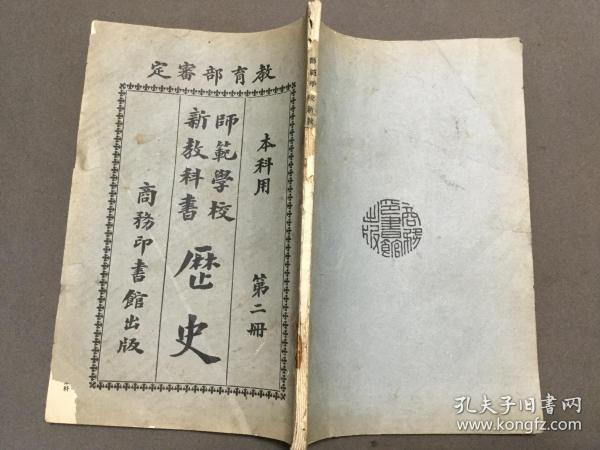 教育部審定
本科用 第二冊
師範學校
新教科書
歷史
商務印書館出版
商務印書館出版
孔夫子旧书网
www.kongfz.com